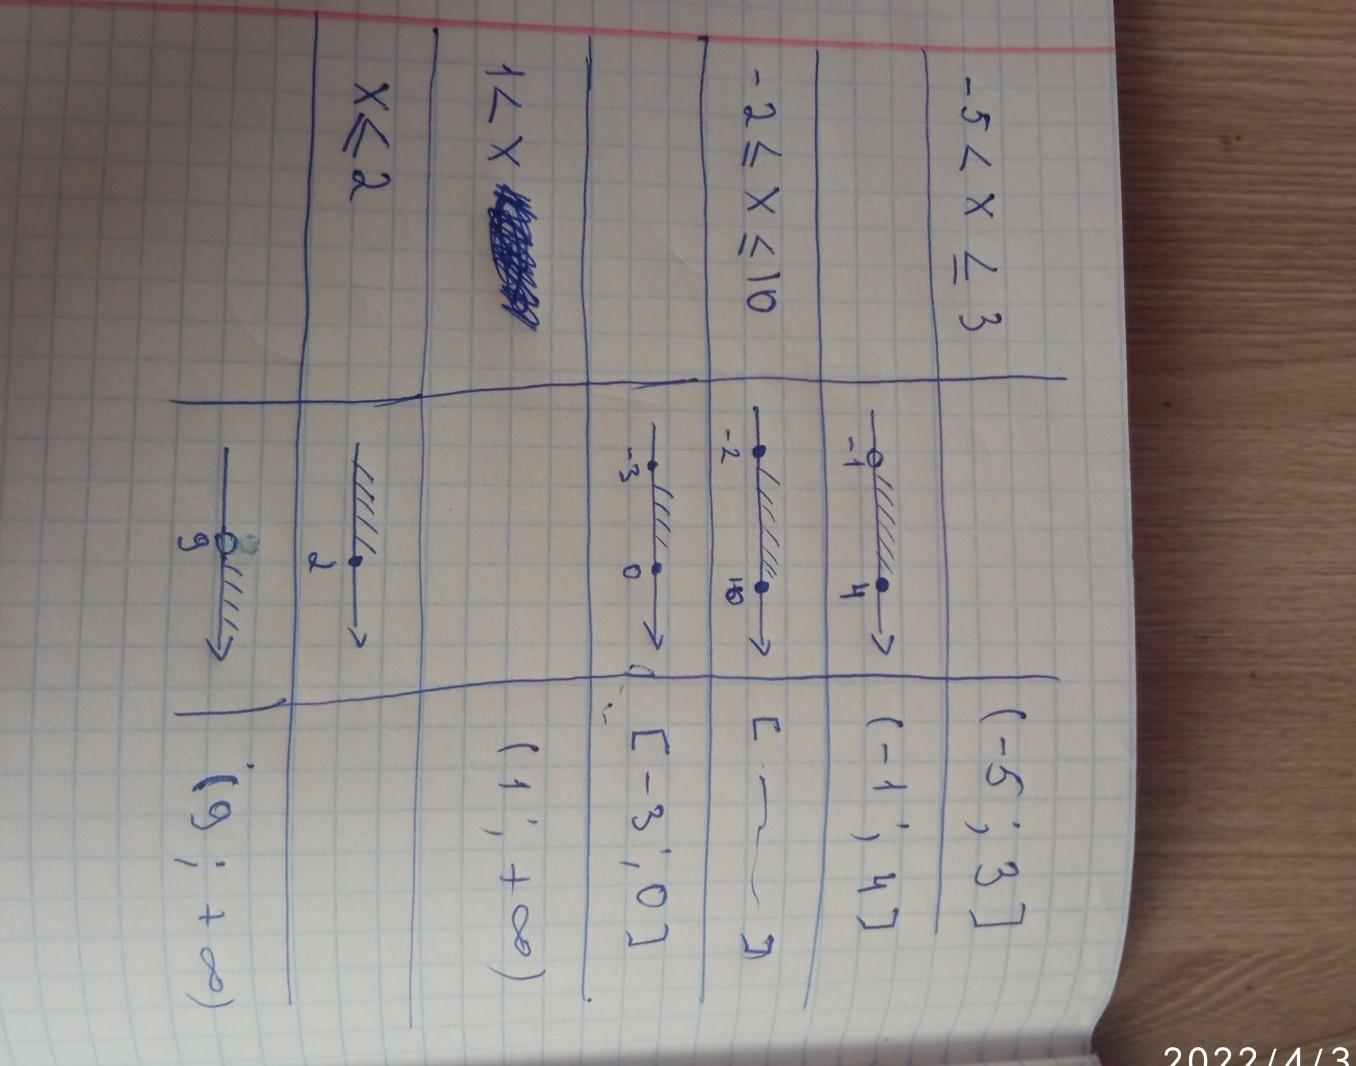 -5 < x ≤ 3 (-5; 3]
-1 4 (-1; 4]
-2 ≤ x ≤ 10 -2 10 [ ]
-3 0 [-3; 0]
1 < x (1; +∞)
x ≤ 2 2
9 (9; +∞)
2022/4/3